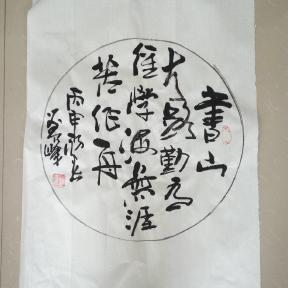 書山
有路勤為
徑學海無涯
苦作舟
丙申
峰